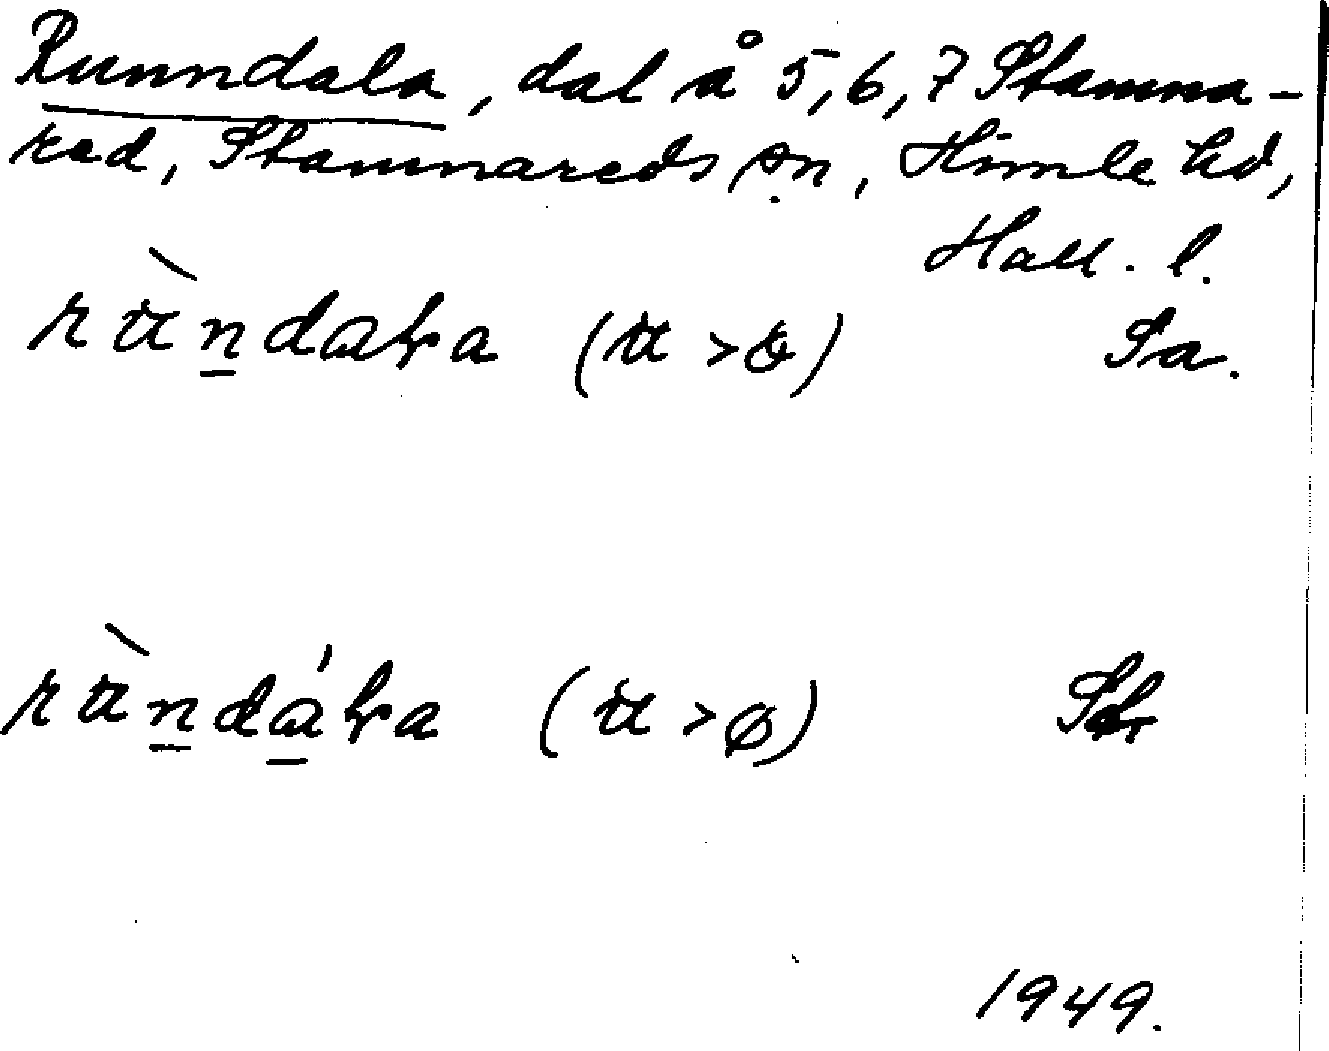 Runndala, dal å 5, 6, 7 Stamna-
red, Stamnareds sn, Himle hd,
Hall. l.
ru̇̀n̲daɽa (u̇ > ɵ) Sa.
ru̇̀n̲dá̲ɽa (u̇ > ø)
1949.